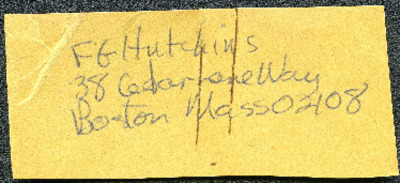 FG Hutchins
38 Cedar Lane Way
Boston Mass 02108